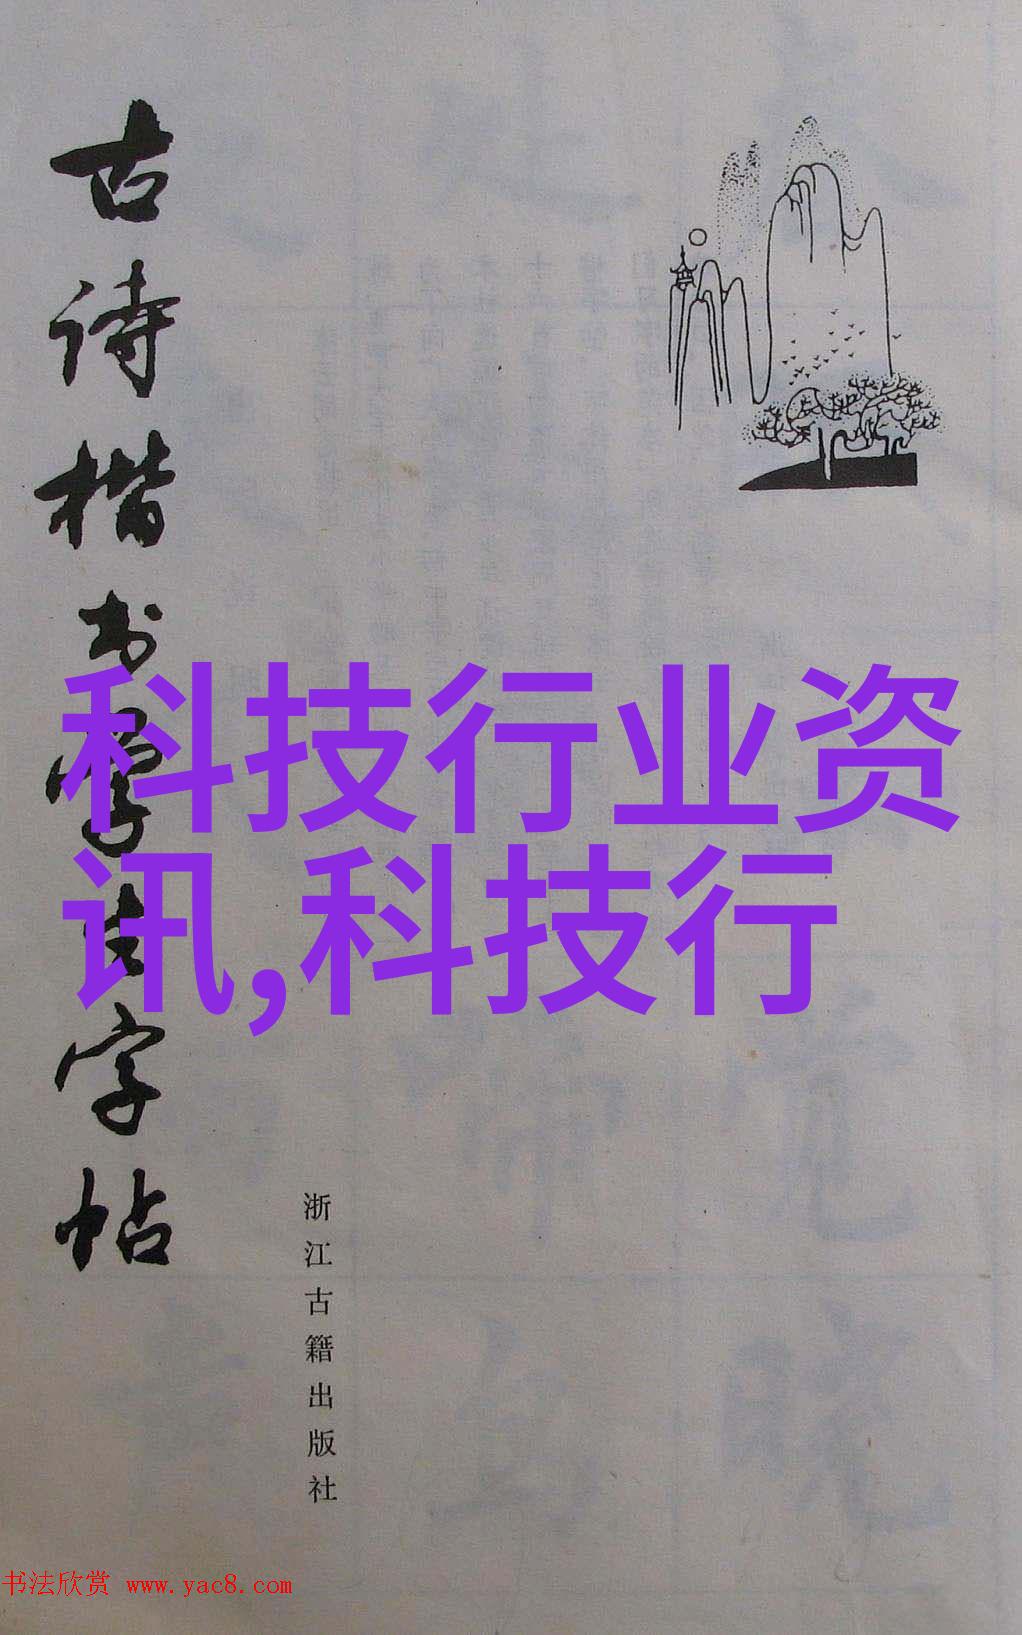 古诗楷书学生字帖
科技行业资
讯,科技行
浙江古籍出版社
书法欣赏 www.yac8.com